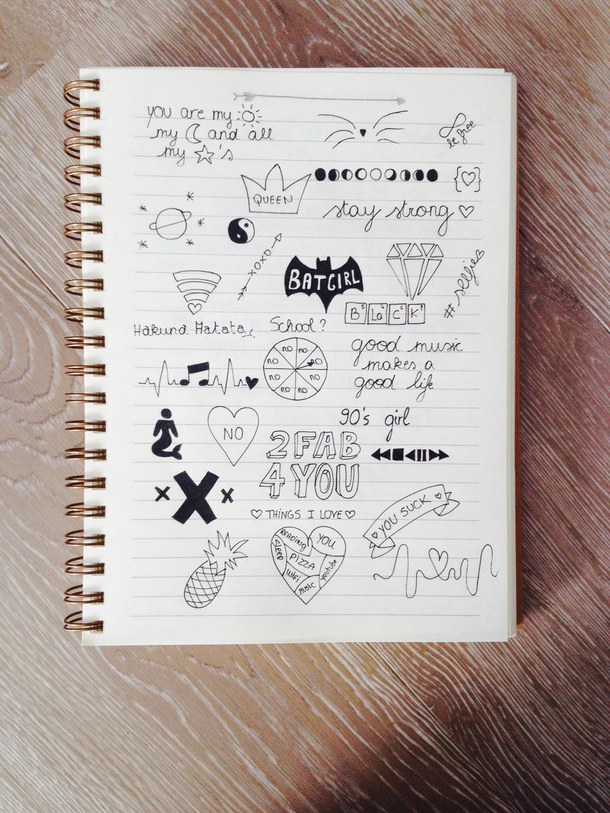 you are my
my and all
my 's
be free
QUEEN
stay strong
XOXO
BATGIRL
# selfies
B La C K
Hakuna Matata
School?
NO NO NO NO NO NO NO NO
good music
makes a
good life
NO
90's girl
2 FAB
4 YOU
THINGS I LOVE
YOU SUCK
READING
YOU
SLEEP
PIZZA
WIFI
YouTube
MUSIC